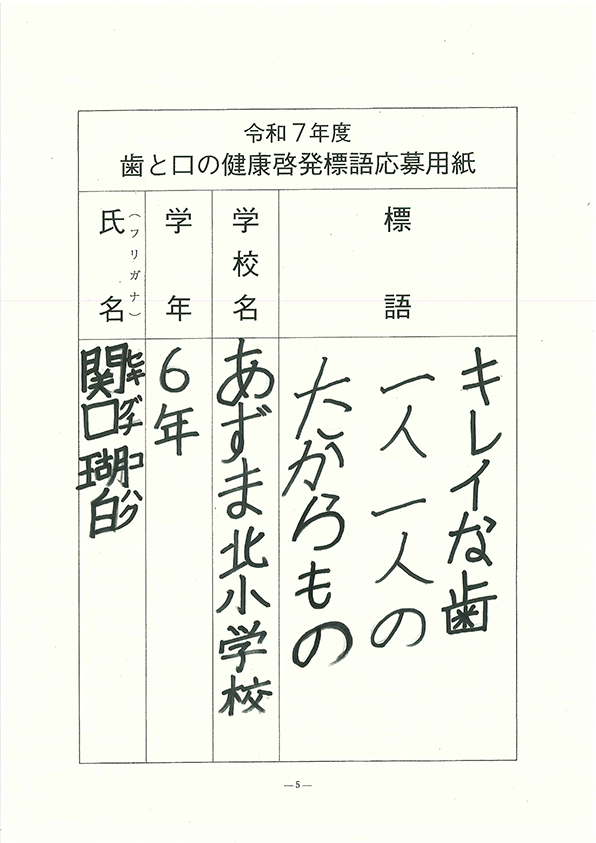 令和７年度
歯と口の健康啓発標語応募用紙
標語
キレイな歯
一人一人の
たからもの
学校名
あずま北小学校
学年
6年
氏名
（フリガナ）
関口瑚白
セキグチコハク
―5―